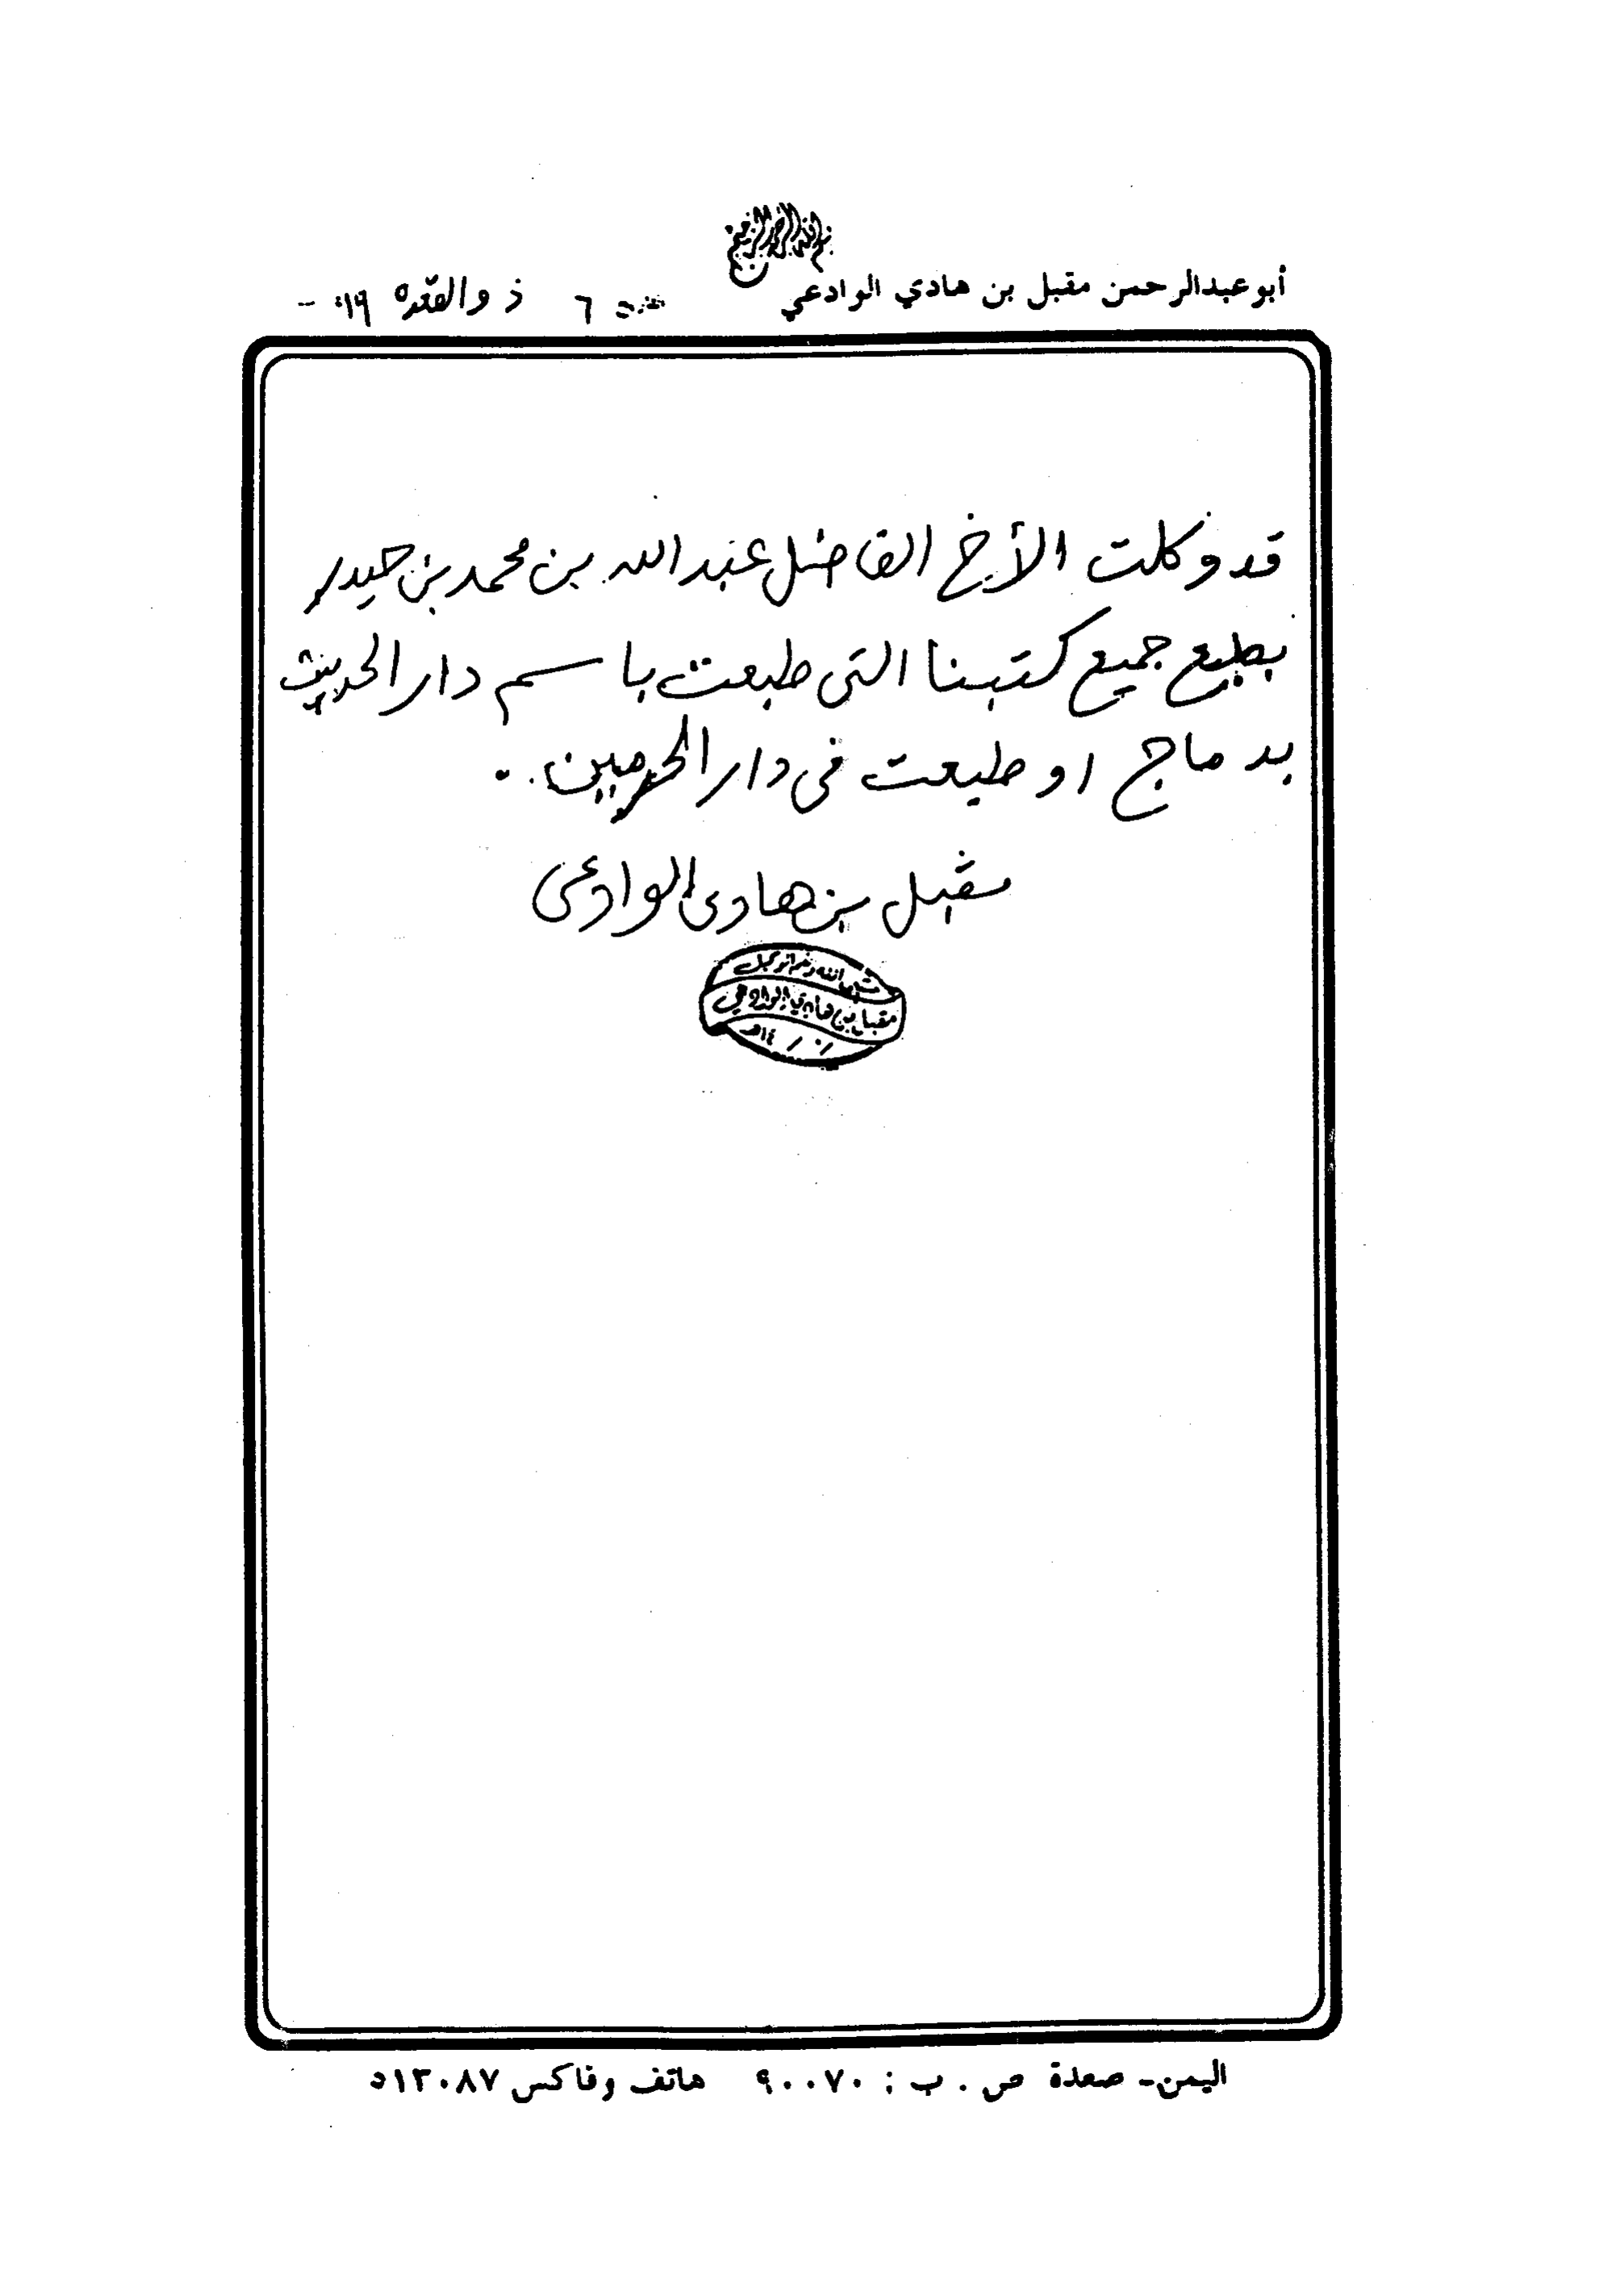 بسم الله الرحمن الرحيم
أبو عبدالرحمن مقبل بن هادي الوادعي
٦ ذوالقعده ١٩
قد وكلت الأخ الفاضل عبد الله بن محمد بن حيدر
بطبع جميع كتبنا التى طبعت باسم دار الحديث
بدماج او طبعت فى دار الحرمين.
مقبل بن هادى الوادعى
مقبل بن هادي الوادعي
اليمن- صعدة ص . ب : ٩٠٠٧٠ هاتف وفاكس ٥١٣٠٨٧